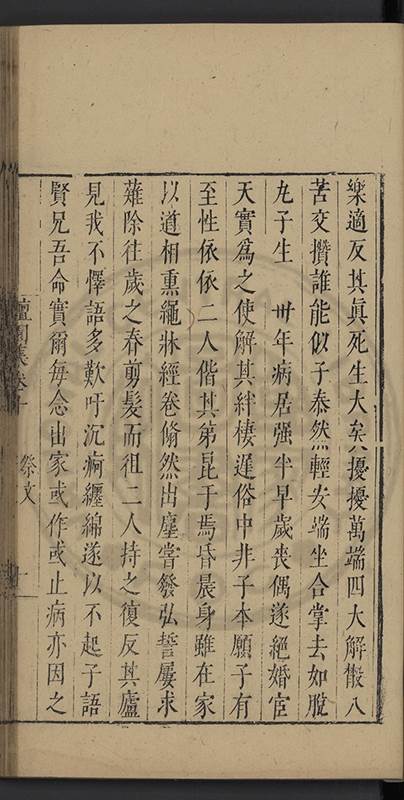 樂適反其眞死生大矣擾擾萬端四大解散八
苦交攢誰能似子泰然輕安端坐合掌去如脫
九子生　卅年病居强半早歲喪偶遂絕婚宦
天實爲之使解其絆棲遲俗中非子本願子有
至性依依二人偕其弟昆于焉昏晨身雖在家
以道相熏繩牀經卷翛然出塵嘗發弘誓屢求
薙除往歲之春剪髮而徂二人持之復反其廬
見我不懌語多歎吁沉痾纏綿遂以不起子語
賢兄吾命實爾每念出家或作或止病亦因之
檀園集卷十　祭文